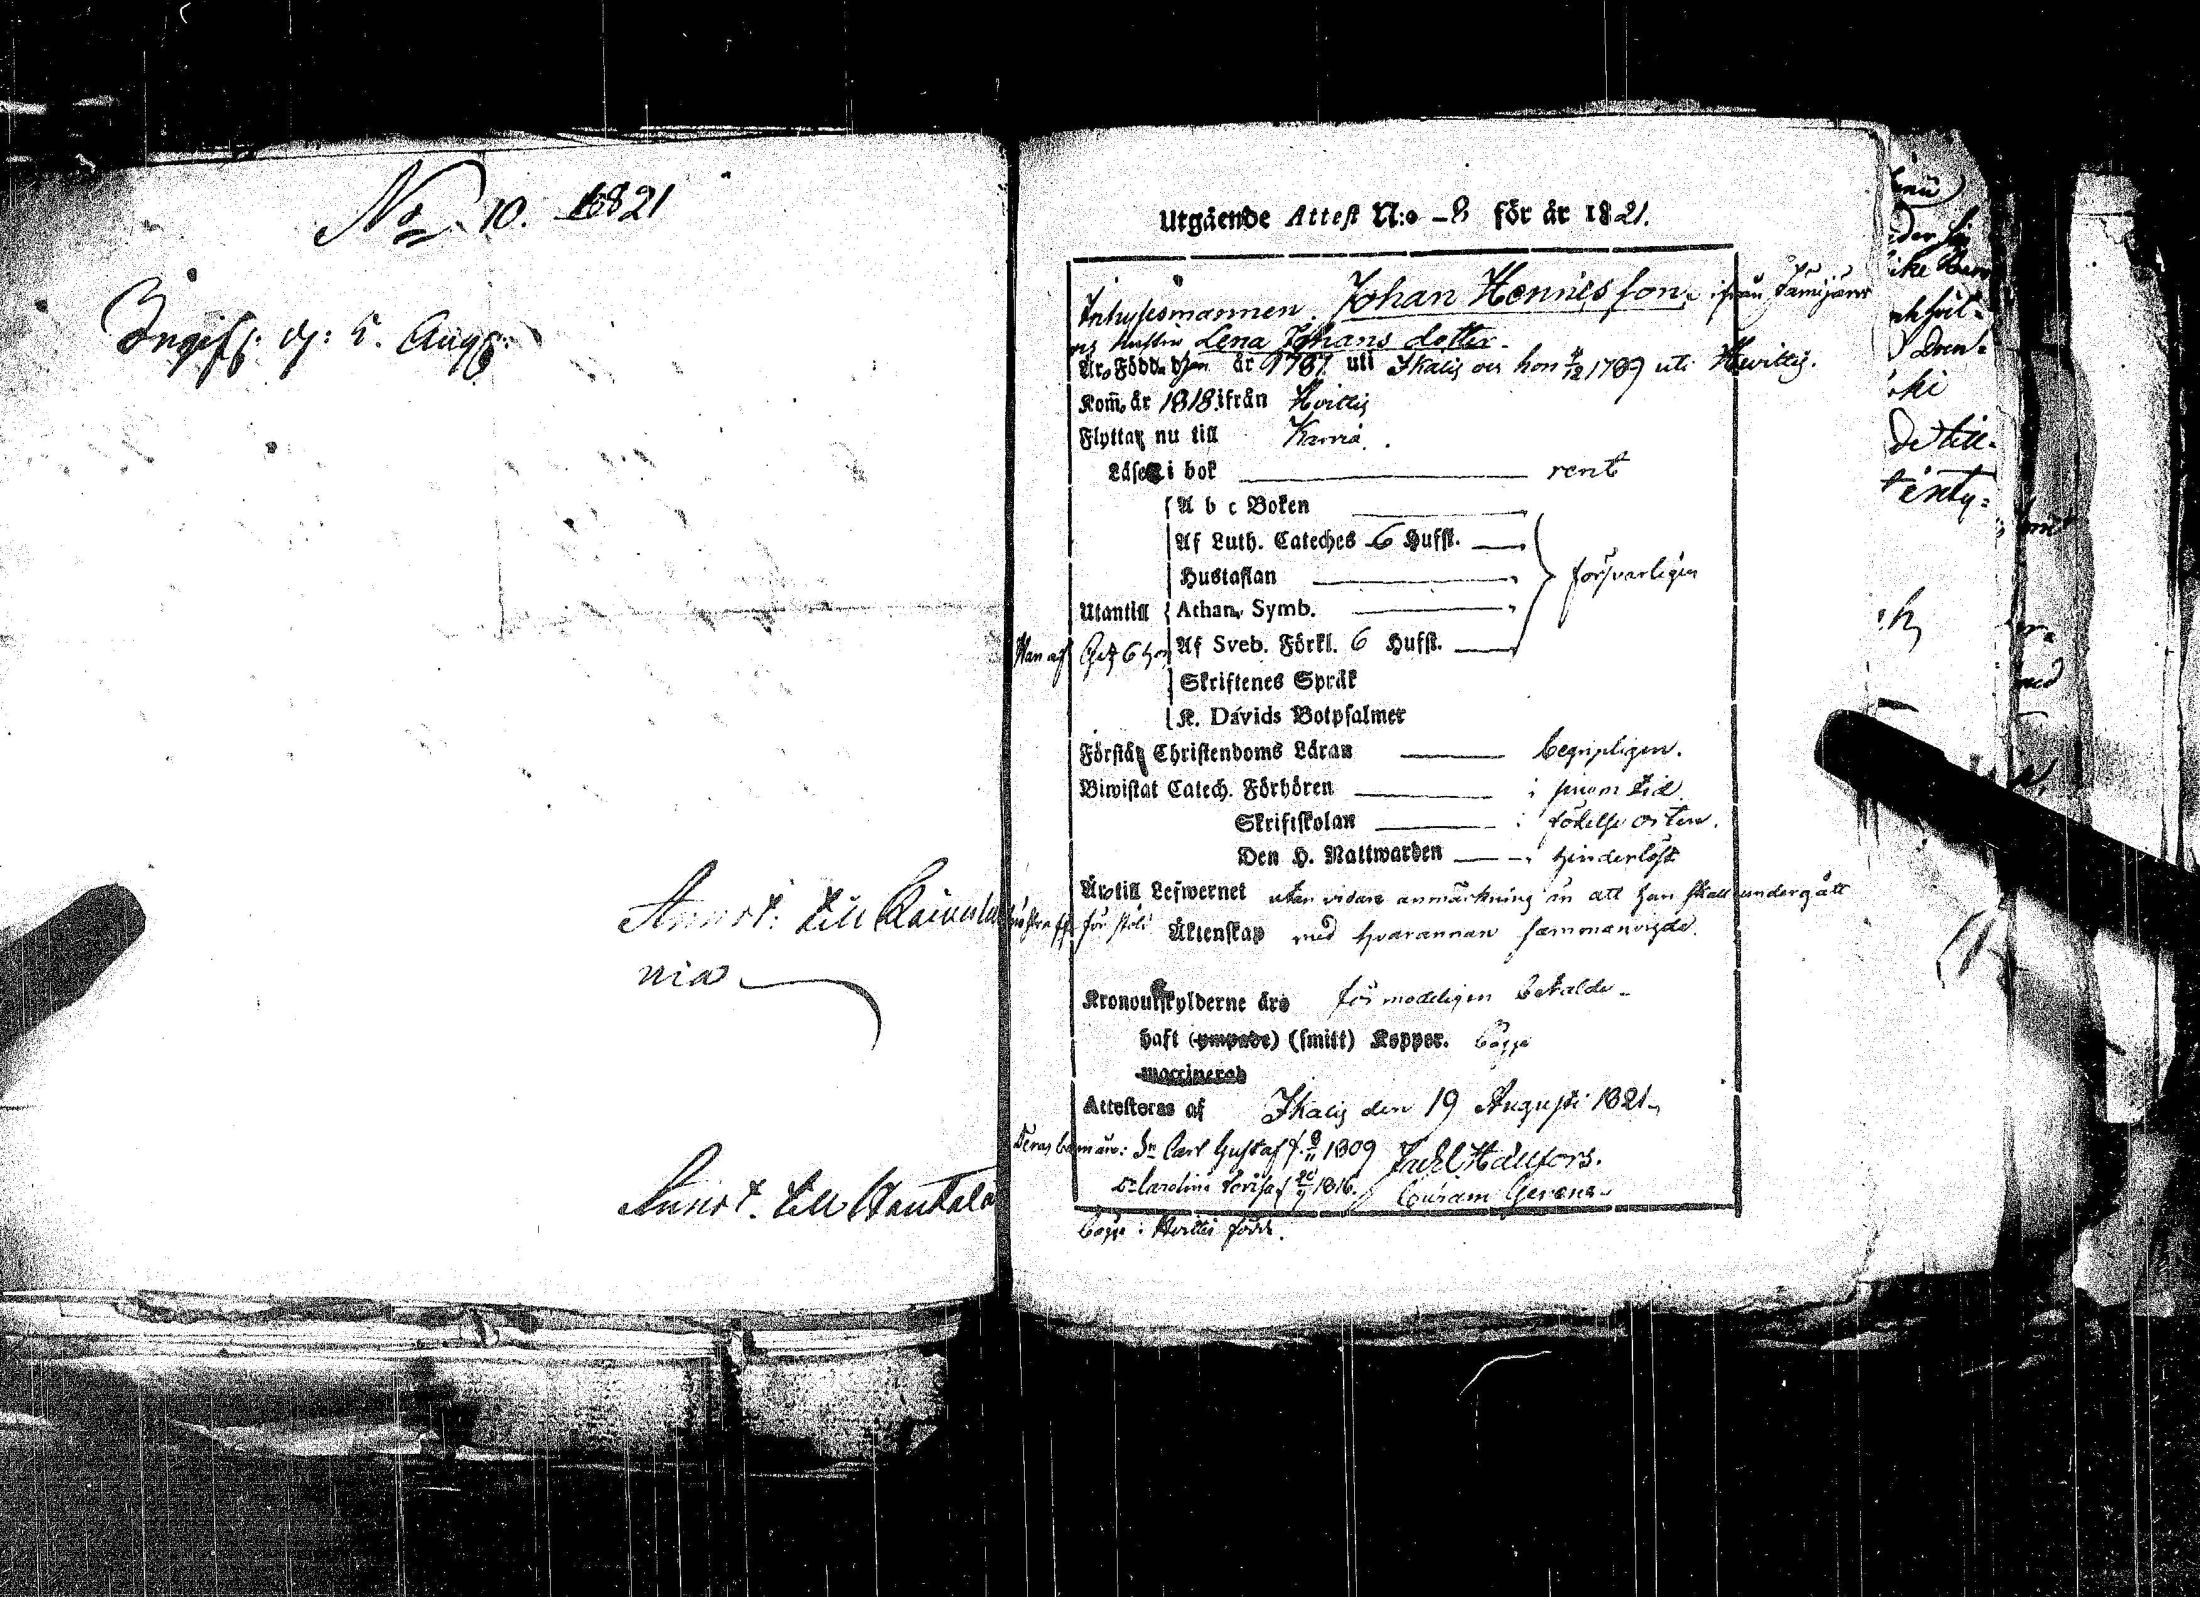 No. 10. 1821
Annot: till
nia
Annot. till
Utgående Attest N:o 8 för år 1821.
Inhysesmannen Johan Hennisson ifrån
og hustru Lena Johans dotter.
Äro Född han år 1787 uti Ikalis och hon 4/12 1789 uti Hvittis.
Kom̃o år 1818 ifrån Hvittis
Flyttar nu till Karvia.
Läser i bok rent
A b c Boken
Af Luth. Cateches 6 Hufst.
Hustaflan försvarligen
Utantill Athan. Symb.
Af Sveb. Förkl. 6 Hufst.
Skriftenes Språk
K. Davids Botpsalmer
Förstår Christendoms Läran begripligen.
Biwistat Catech. Förhören i sinom tid
Skriftskolan i födelse orten.
Den H. Nattwarden hinderlöst
Äro till Lefwernet utan vidare anmärkning än att han skall undergått
straff för stöld Äktenskap med hvarannan sammanvigde.
Kronoutskylderne äro förmodeligen betalde
haft (ympade) (smitt) Koppor. bägge
waccinerad
Attesteras af Ikalis den 19 Augusti 1821
Deras barn äro: Sn Carl Gustaf f. 9/11 1809
Dr Carolina Lovisa f 1816. Curam Gerens
bägge i Hvittis född.